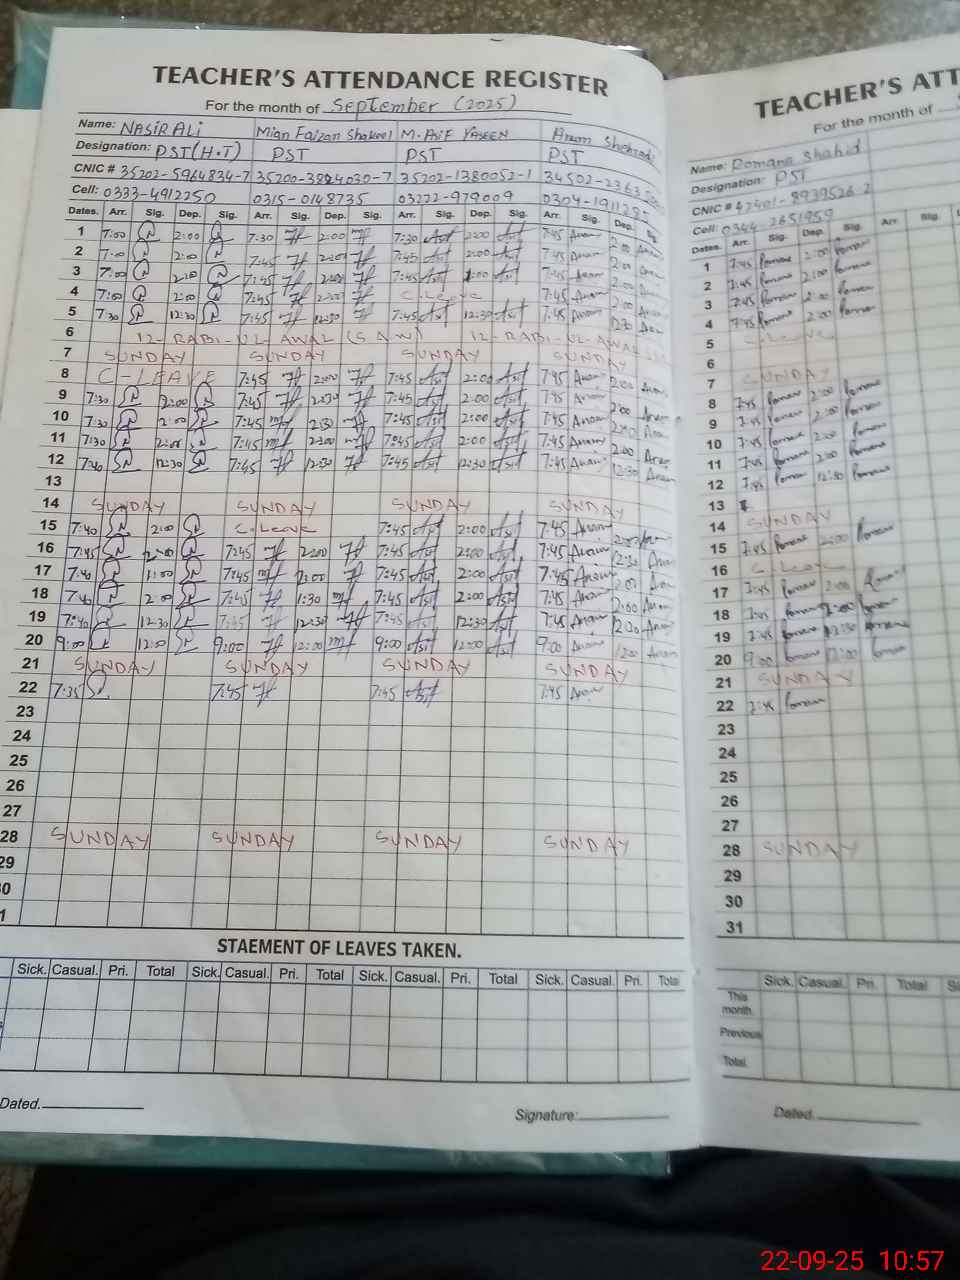 TEACHER'S ATTENDANCE REGISTER
For the month of September (2025)
Name: NASIR ALI Mian Faizan Shakeel M. Asif YASEEN Anam Shehzadi
Designation: PST (H.T) PST PST PST
CNIC # 35202-5964834-7 35200-3824030-7 35202-1380052-1 34502-2363
Cell: 0333-4912250 0315-0148735 03222-979009 0304-1911285
Dates. Arr. Sig. Dep. Sig. Arr. Sig. Dep. Sig. Arr. Sig. Dep. Sig. Arr. Sig. Dep. Sig.
1 7:00 2:00 7:30 2:00 7:30 Asif 2:00 Asif 7:45 Anam 2:00 Anam
2 7:00 2:00 7:45 2:00 7:45 Asif 2:00 Asif 7:45 Anam 2:00 Anam
3 7:00 2:00 7:45 2:00 7:45 Asif 2:00 Asif 7:45 Anam 2:00 Anam
4 7:00 2:00 7:45 2:00 C.Leave 7:45 Anam 2:00 Anam
5 7:30 12:30 7:45 12:30 7:45 Asif 12:30 Asif 7:45 Anam 12:30 Anam
6 12-RABI-UL-AWAL (S.A.W) 12-RABI-UL-AWAL
7 SUNDAY SUNDAY SUNDAY SUNDAY
8 C-LEAVE 7:45 2:00 7:45 Asif 2:00 Asif 7:45 Anam 2:00 Anam
9 7:30 2:00 7:45 7:45 Asif 2:00 Asif 7:45 Anam 2:00 Anam
10 7:30 2:00 7:45 7:45 Asif 2:00 Asif 7:45 Anam 2:00 Anam
11 7:30 2:00 7:45 2:00 7:45 Asif 2:00 Asif 7:45 Anam 2:00 Anam
12 7:40 12:30 7:45 12:30 7:45 Asif 12:30 Asif 7:45 Anam 12:30 Anam
13
14 SUNDAY SUNDAY SUNDAY SUNDAY
15 7:40 2:00 C.Leave 7:45 Asif 2:00 Asif 7:45 Anam 2:00
16 7:45 2:00 7:45 2:00 7:45 Asif 2:00 Asif 7:45 Anam 2:30 Anam
17 7:40 7:45 2:00 7:45 Asif 2:00 Asif 7:45 Anam 2:00 Anam
18 7:40 2:00 7:45 1:30 7:45 Asif 2:00 Asif 7:45 Anam 2:00 Anam
19 7:40 12:30 7:45 12:30 7:45 Asif 12:30 Asif 7:45 Anam 12:30 Anam
20 9:00 12:00 9:00 12:00 9:00 Asif 12:00 Asif 9:00 Anam 12:00 Anam
21 SUNDAY SUNDAY SUNDAY SUNDAY
22 7:35 7:45 7:45 Asif 7:45 Anam
23
24
25
26
27
28 SUNDAY SUNDAY SUNDAY SUNDAY
29
30
31
STAEMENT OF LEAVES TAKEN.
Sick. Casual. Pri. Total Sick. Casual. Pri. Total Sick. Casual. Pri. Total Sick. Casual. Pri. Total
Dated.
Signature:
TEACHER'S ATT
For the month of
Name: Romana Shahid
Designation: PST
CNIC # 42401-8939526-2
Cell: 0344-2651959
Dates. Arr. Sig. Dep. Sig. Arr. Sig.
1 7:45 Romana 2:00 Romana
2 7:45 Romana 2:00 Romana
3 7:45 Romana 2:00 Romana
4 7:45 Romana 2:00 Romana
5 C.Leave
6
7 SUNDAY
8 7:45 Romana 2:00 Romana
9 7:45 Romana 2:00 Romana
10 7:45 Romana 2:00 Romana
11 7:45 Romana 2:00 Romana
12 7:45 Romana 12:30 Romana
13
14 SUNDAY
15 7:45 Romana 2:00 Romana
16 C.Leave
17 7:45 Romana 2:00 Romana
18 7:45 Romana 2:00 Romana
19 7:45 Romana 12:30 Romana
20 9:00 Romana 12:00 Romana
21 SUNDAY
22 7:45 Romana
23
24
25
26
27
28 SUNDAY
29
30
31
Sick. Casual. Pri. Total
This month.
Previous
Total.
Dated.
22-09-25 10:57